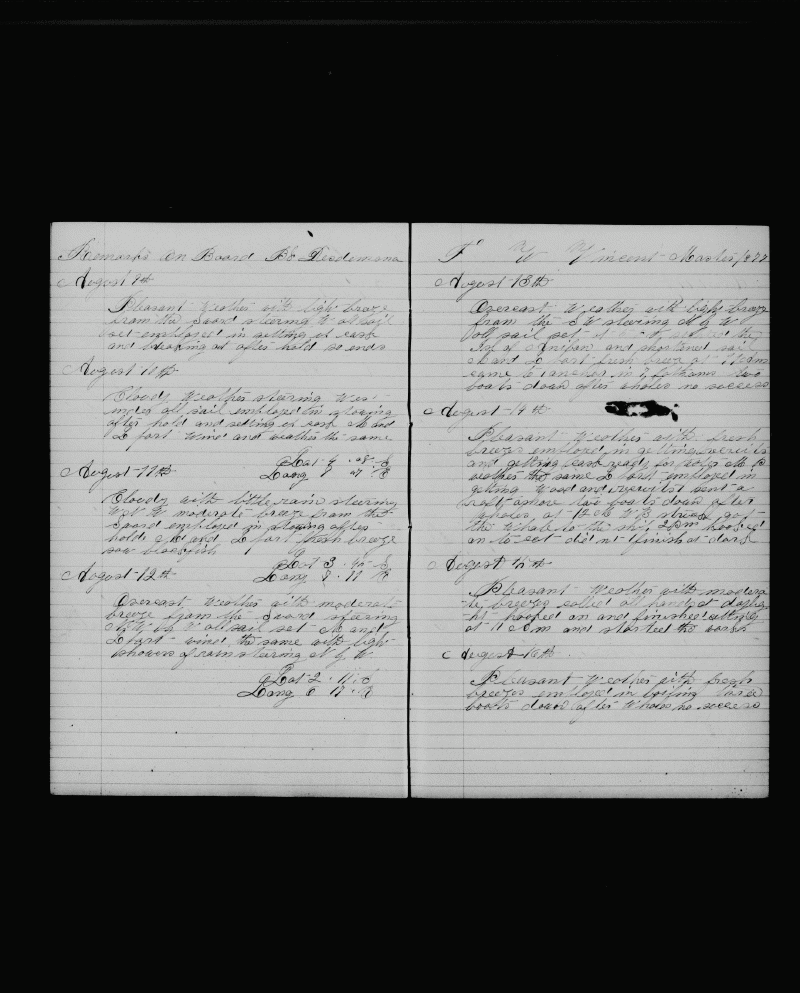 Remarks on Board Bk Desdemona
August 9th
Pleasant Weather with light breeze
from the Soard steering W all sail
set employed in setting up cask
and breaking out after hold so ends
August 10th
Cloudy Weather steering Wes
all sail employed in stowing
after hold and setting up cask M and
L part Wind and weather the same
Lat 4 . 08 S
Long 7
August 11th
Cloudy with little rain steering
West W moderate breeze from the
Soard employed in stowing after
hold M and L part fresh breeze
saw blackfish
Lat 3 . S
Long 9 . 11
August 12th
Overcast Weather with moderate
breeze from the Soard steering
N W by W all sail set M and
L part wind the same with light
showers of rain steering N by W
Lat 2 . 11 S
Long
F W Vincent Master 1877
August 13th
Overcast Weather with light breeze
from the S W steering N by W
all sail set
of and shortened sail
M and L part fresh breeze at 11 am
came to anchor in 7 fathoms two
boats down after whales no success
August 14th
Pleasant Weather with fresh
breeze employed in getting
and getting cask ready for M P
weather the same L part employed in
getting Wood and sent a
boats down after
whales at struck got
the Whale to the ship 2 pm hooked
on to cut did nt finish at dark
August 15th
Pleasant Weather with modera
te breeze called all hands at daylig
ht hooked on and finished cutting
at 11 a m and started the works
August 16th
Pleasant Weather with fresh
breezes employed in boiling three
boats down after Whales no success